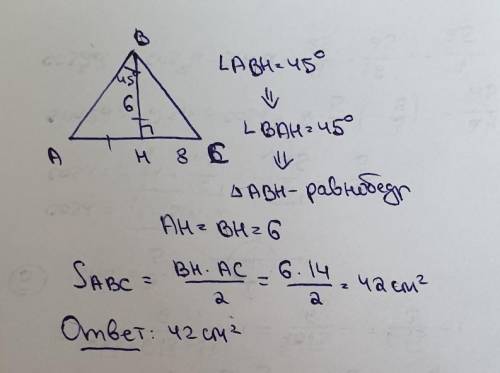 B
45°
6
A H 8 C
∠ABH=45°
⇓
∠BAH=45°
⇓
△ABH-равнобедр
AH=BH=6
S_ABC = BH·AC/2 = 6·14/2 = 42 см²
Ответ: 42 см²